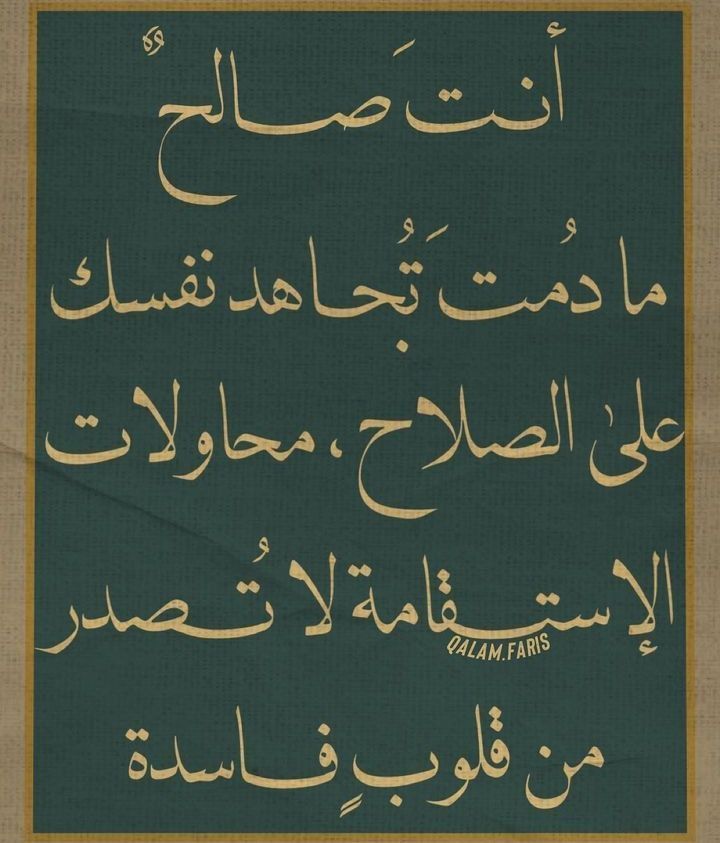 أنتَ صالحٌ
ما دُمتَ تُجاهد نفسك
علىٰ الصلاح ، محاولات
الإستقامة لا تُصدر
QALAM.FARIS
من قلوبٍ فاسدة